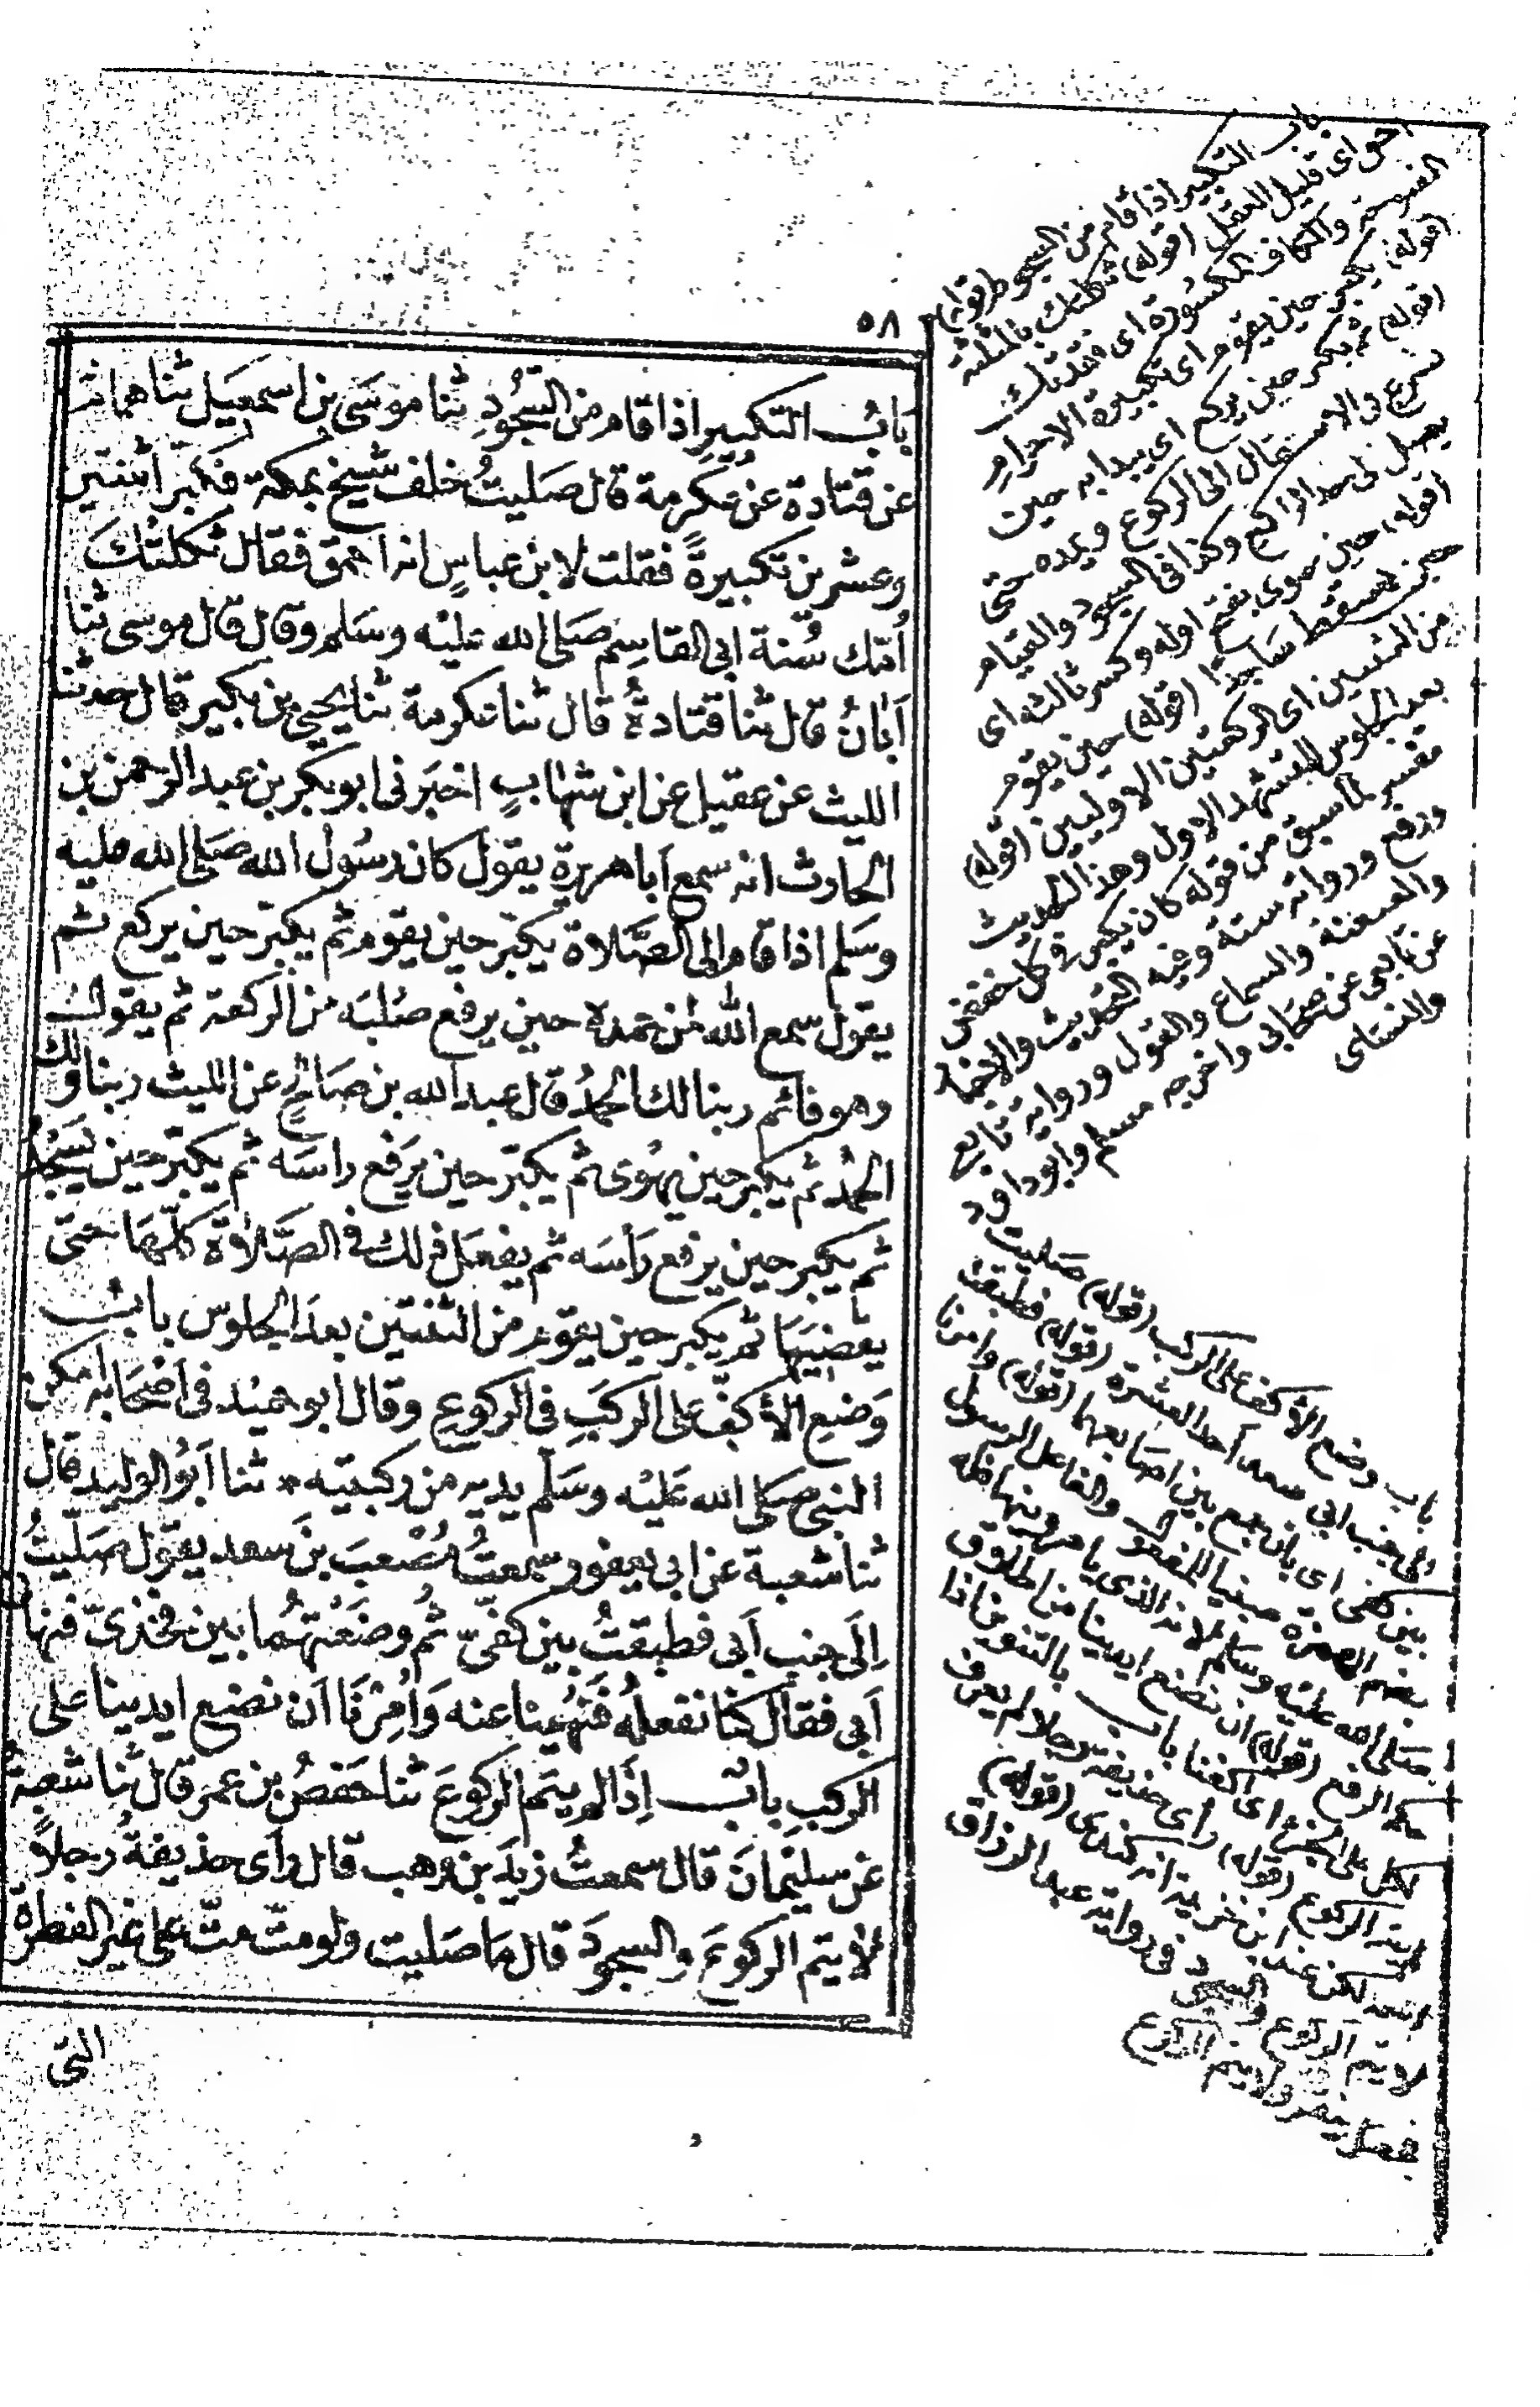 ٥٨
باب التكبير اذا قام من السجود ثنا موسى بن اسمعيل ثنا همام
عن قتادة عن عكرمة قال صليت خلف شيخ بمكة فكبر اثنتين
وعشرين تكبيرة فقلت لابن عباس انه احمق فقال ثكلتك
أمك سنة ابى القاسم صلى الله عليه وسلم وقال قال موسى ثنا
أبان قال ثنا قتادة قال ثنا عكرمة ثنا يحيى بن بكير قال حدثنا
الليث عن عقيل عن ابن شهاب اخبرنى ابو بكر بن عبد الرحمن بن
الحارث انه سمع أبا هريرة يقول كان رسول الله صلى الله عليه
وسلم اذا قام الى الصلاة يكبر حين يقوم ثم يكبر حين يركع ثم
يقول سمع الله لمن حمده حين يرفع صلبه من الركعة ثم يقول
وهو قائم ربنا لك الحمد قال عبد الله بن صالح عن الليث ربنا ولك
الحمد ثم يكبر حين يهوى ثم يكبر حين يرفع راسه ثم يكبر حين يسجد
ثم يكبر حين يرفع رأسه ثم يفعل ذلك فى الصلاة كلها حتى
يقضيها ثم يكبر حين يقوم من الثنتين بعد الجلوس باب
وضع الأكف على الركب فى الركوع وقال ابو حميد فى اصحابه امكن
النبى صلى الله عليه وسلم يديه من ركبتيه * ثنا أبو الوليد قال
ثنا شعبة عن ابى يعفور سمعت مصعب بن سعد يقول صليت
الى جنب أبى فطبقت بين كفى ثم وضعتهما بين فخذى فنهانى
أبى فقال كنا نفعله فنهينا عنه وأمرنا أن نضع ايدينا على
الركب باب اذا لم يتم الركوع ثنا حفص بن عمر قال ثنا شعبة
عن سليمان قال سمعت زيد بن وهب قال رأى حذيفة رجلا
لا يتم الركوع والسجود قال ما صليت ولو مت مت على غير الفطرة
التى
باب التكبير اذا قام من السجود (قوله)
احمق اى قليل العقل (قوله) ثكلتك بالمثلثة
المفتوحة والكاف المكسورة اى فقدتك
(قوله) يكبر حين يقوم اى تكبيرة الاحرام
(قوله) ثم يكبر حين يركع اى يبدا به حين
يشرع فى الانتقال الى الركوع ويمده حتى
يصل الى حد الراكع وكذا فى السجود والقيام
(قوله) حين يهوى بفتح اوله وكسر ثالثه اى
حين يسقط ساجدا (قوله) حين يقوم
من الثنتين اى الركعتين الاوليين (قوله)
بعد الجلوس للتشهد الاول وهذا الحديث
مفسر لما سبق من قوله كان يكبر فى كل خفض
ورفع ورواته ستة وفيه التحديث والاخبار
والعنعنة والسماع والقول ورواية تابعى
عن تابعى عن صحابى واخرجه مسلم وابو داود
والنسائى
باب وضع الأكف على الركب (قوله) صليت
الى جنب ابى سعد أحد العشرة (قوله) فطبقت
بين كفى اى بان جمع بين اصابعهما (قوله) وامرنا
بضم الهمزة مبنيا للمفعول والفاعل الرسول
صلى الله عليه وسلم لانه الذى يامر وينهى فله
حكم الرفع (قوله) ان نضع ايدينا من اطلاق
الكل على الجزء اى اكفنا باب بالتنوين اذا
لم يتم الركوع (قوله) رأى حذيفة رجلا لم يعرف
اسمه لكن عند ابن خزيمة انه كندى (قوله)
لا يتم الركوع والسجود فى رواية عبد الرزاق
فجعل ينقر ولا يتم الركوع